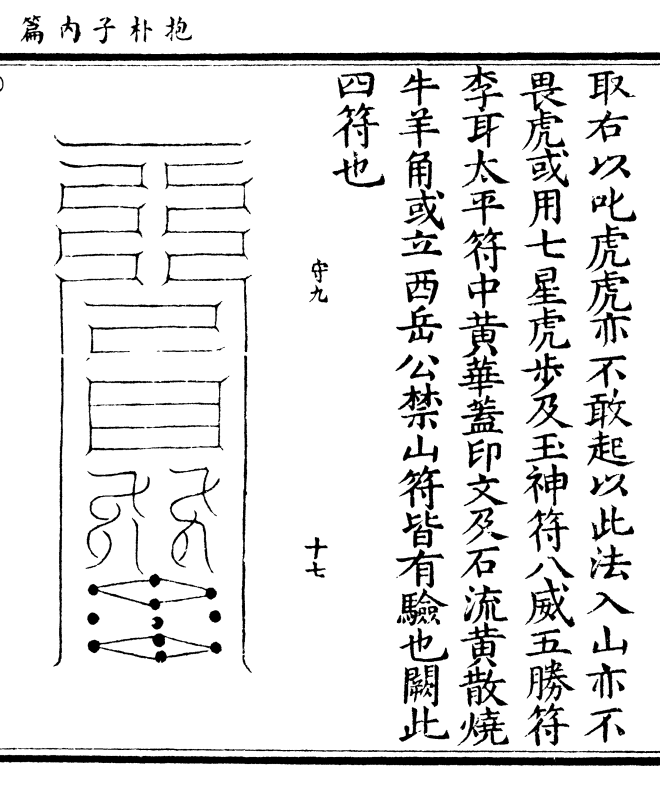 抱朴子内篇
取右以叱虎虎亦不敢起以此法入山亦不
畏虎或用七星虎步及玉神符八威五勝符
李耳太平符中黄華蓋印文及石流黄散燒
牛羊角或立西岳公禁山符皆有驗也闕此
四符也
守九
十七